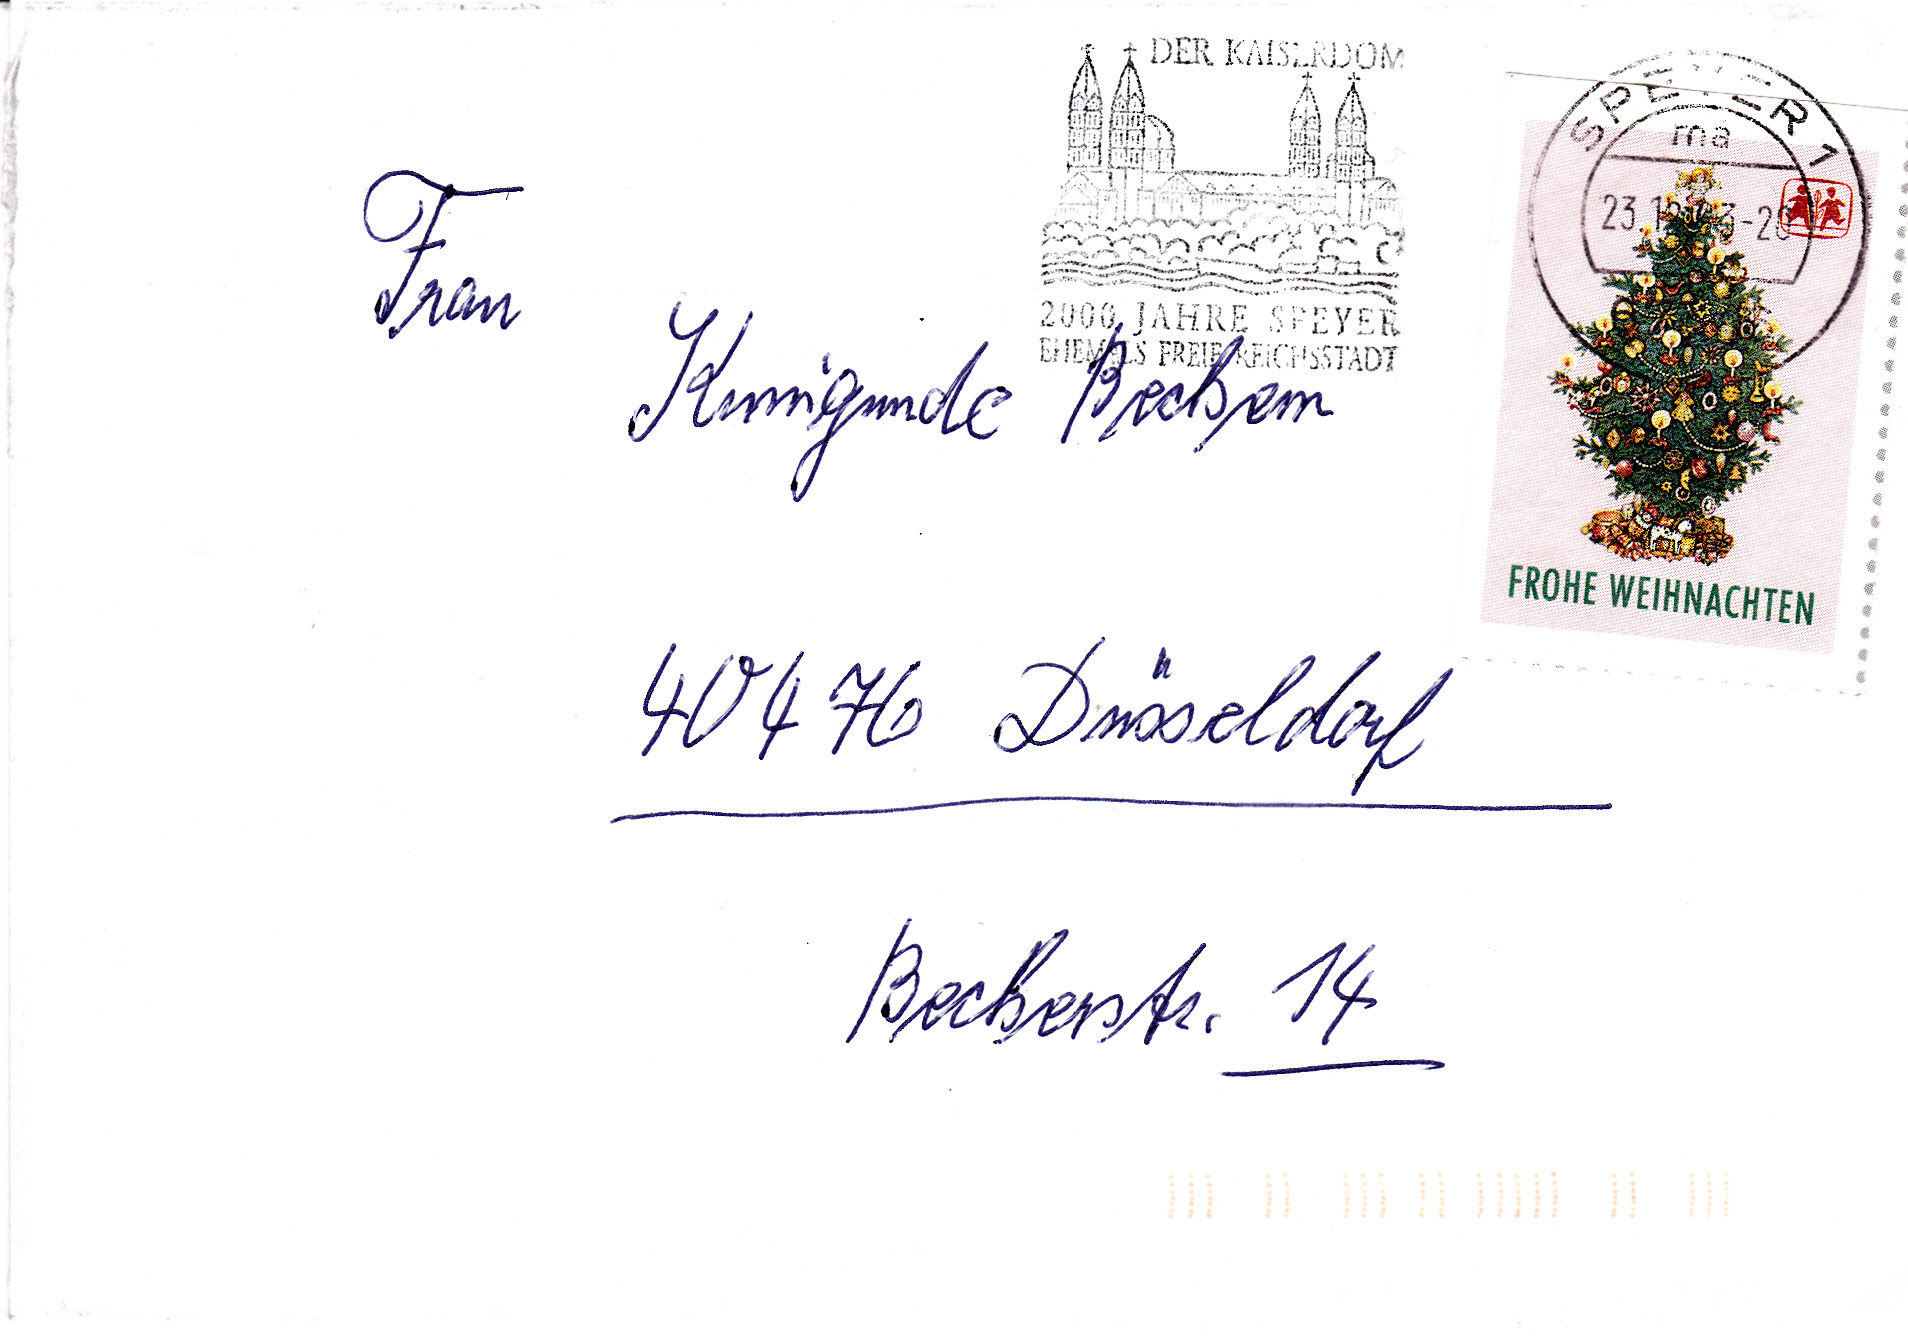 DER KAISERDOM
2000 JAHRE SPEYER
EHEMALS FREIE REICHSSTADT
SPEYER 1
ma
23.12.93-20
FROHE WEIHNACHTEN
Frau
Kunigunde Bechem
40476 Düsseldorf
Becherstr. 14